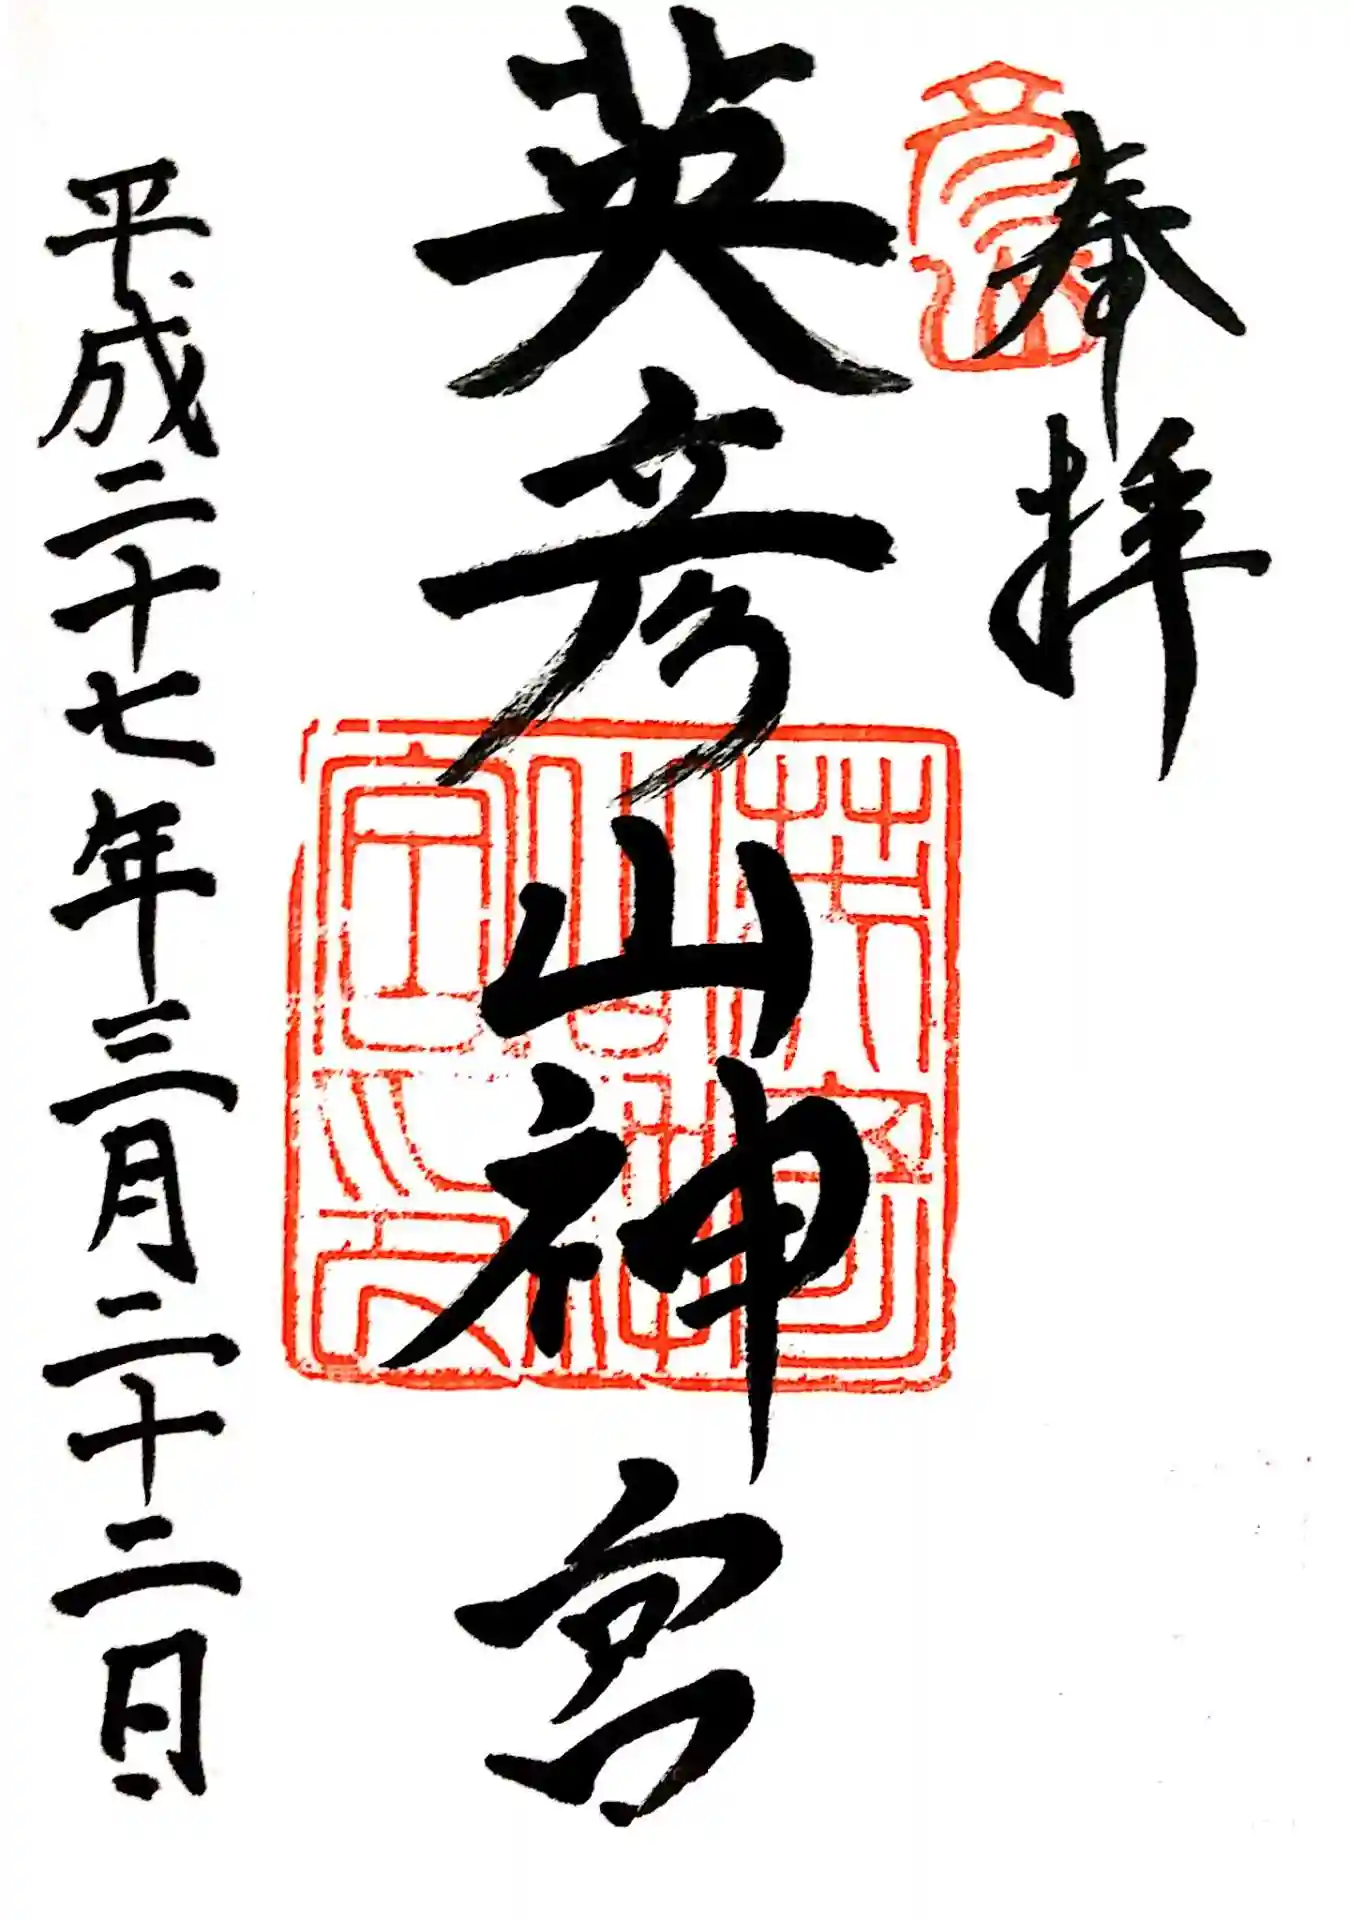 奉拝
英彦山神宮
平成二十七年三月二十二日